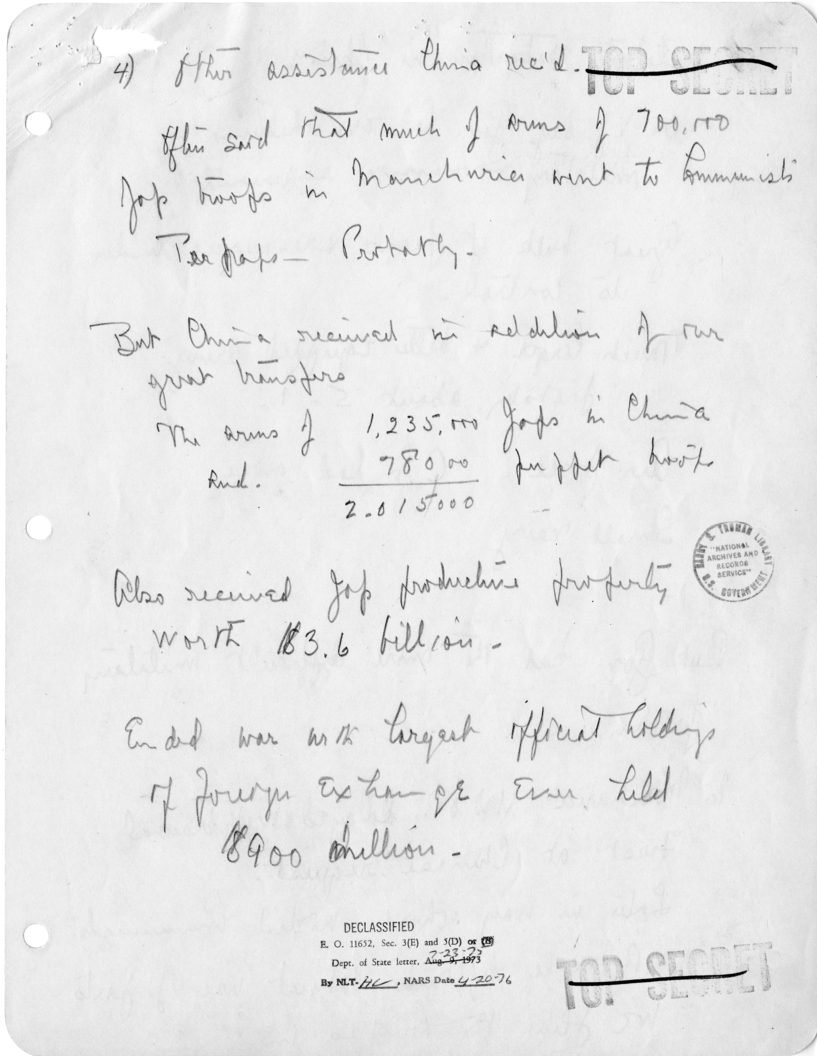 4) Other assistance China rec'd.
TOP SECRET
Often said that much of arms of 700,000
Jap troops in Manchuria went to Communists
Perhaps — Probably.
But China received in addition of our
great transfers
The arms of 1,235,000 Japs in China
and. 780 00 puppet troops
2.015000
Also received Jap productive property
worth $3.6 billion -
HARRY S. TRUMAN LIBRARY
"NATIONAL
ARCHIVES AND
RECORDS
SERVICE"
U.S. GOVERNMENT
Ended war with largest official holdings
of foreign Exchange Ever held
$900 million -
DECLASSIFIED
E. O. 11652, Sec. 3(E) and 5(D) or (E)
7-23-75
Dept. of State letter, Aug. 9, 1973
By NLT- HC , NARS Date 4-20-76
TOP SECRET